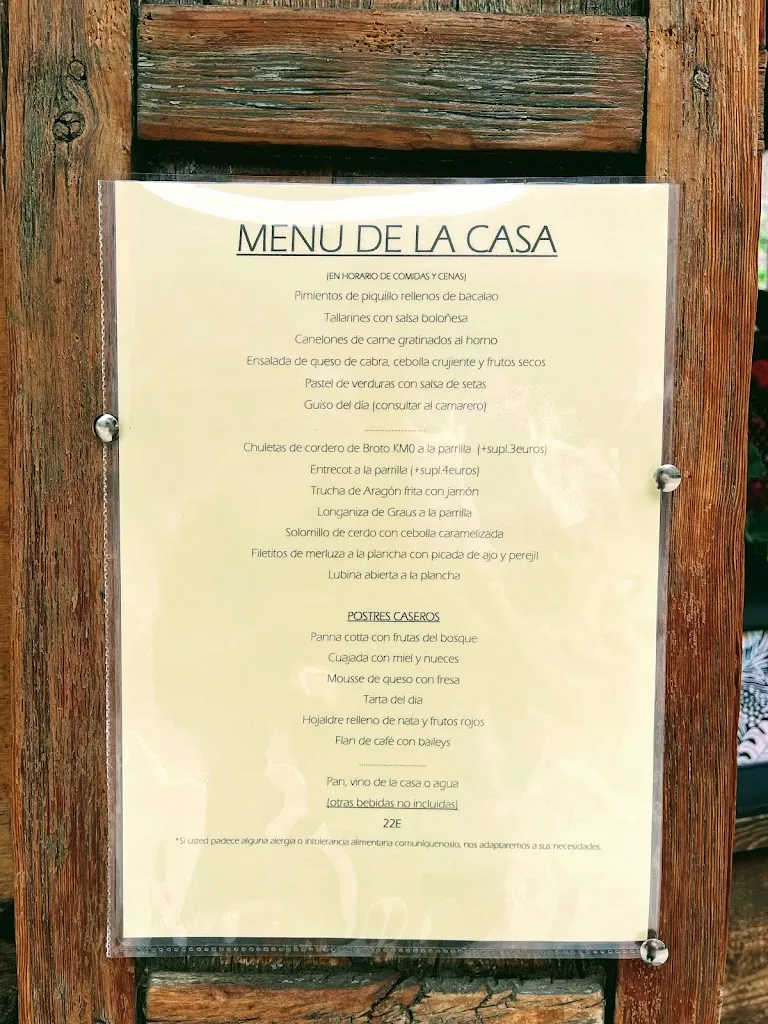 MENU DE LA CASA
(EN HORARIO DE COMIDAS Y CENAS)
Pimientos de piquillo rellenos de bacalao
Tallarines con salsa boloñesa
Canelones de carne gratinados al horno
Ensalada de queso de cabra, cebolla crujiente y frutos secos
Pastel de verduras con salsa de setas
Guiso del día (consultar al camarero)
..............................
Chuletas de cordero de Broto KM0 a la parrilla (+supl.3euros)
Entrecot a la parrilla (+supl.4euros)
Trucha de Aragón frita con jamón
Longaniza de Graus a la parrilla
Solomillo de cerdo con cebolla caramelizada
Filetitos de merluza a la plancha con picada de ajo y perejil
Lubina abierta a la plancha
POSTRES CASEROS
Panna cotta con frutas del bosque
Cuajada con miel y nueces
Mousse de queso con fresa
Tarta del día
Hojaldre relleno de nata y frutos rojos
Flan de café con baileys
..............................
Pan, vino de la casa o agua
(otras bebidas no incluidas)
22E
*Si usted padece alguna alergia o intolerancia alimentaria comuníquenoslo, nos adaptaremos a sus necesidades.